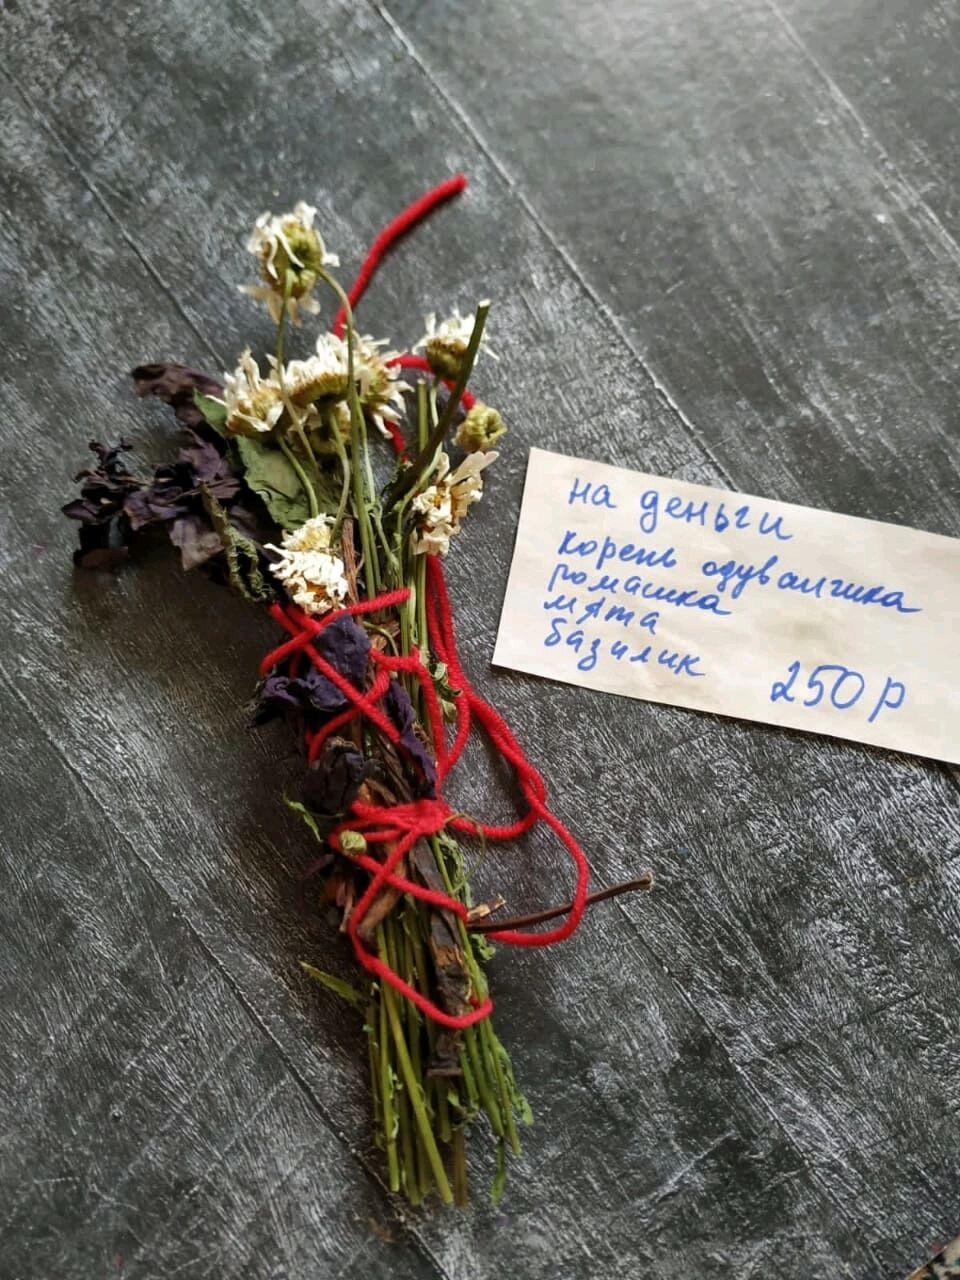 на деньги
корень одуванчика
ромашка
мята
базилик
250 р